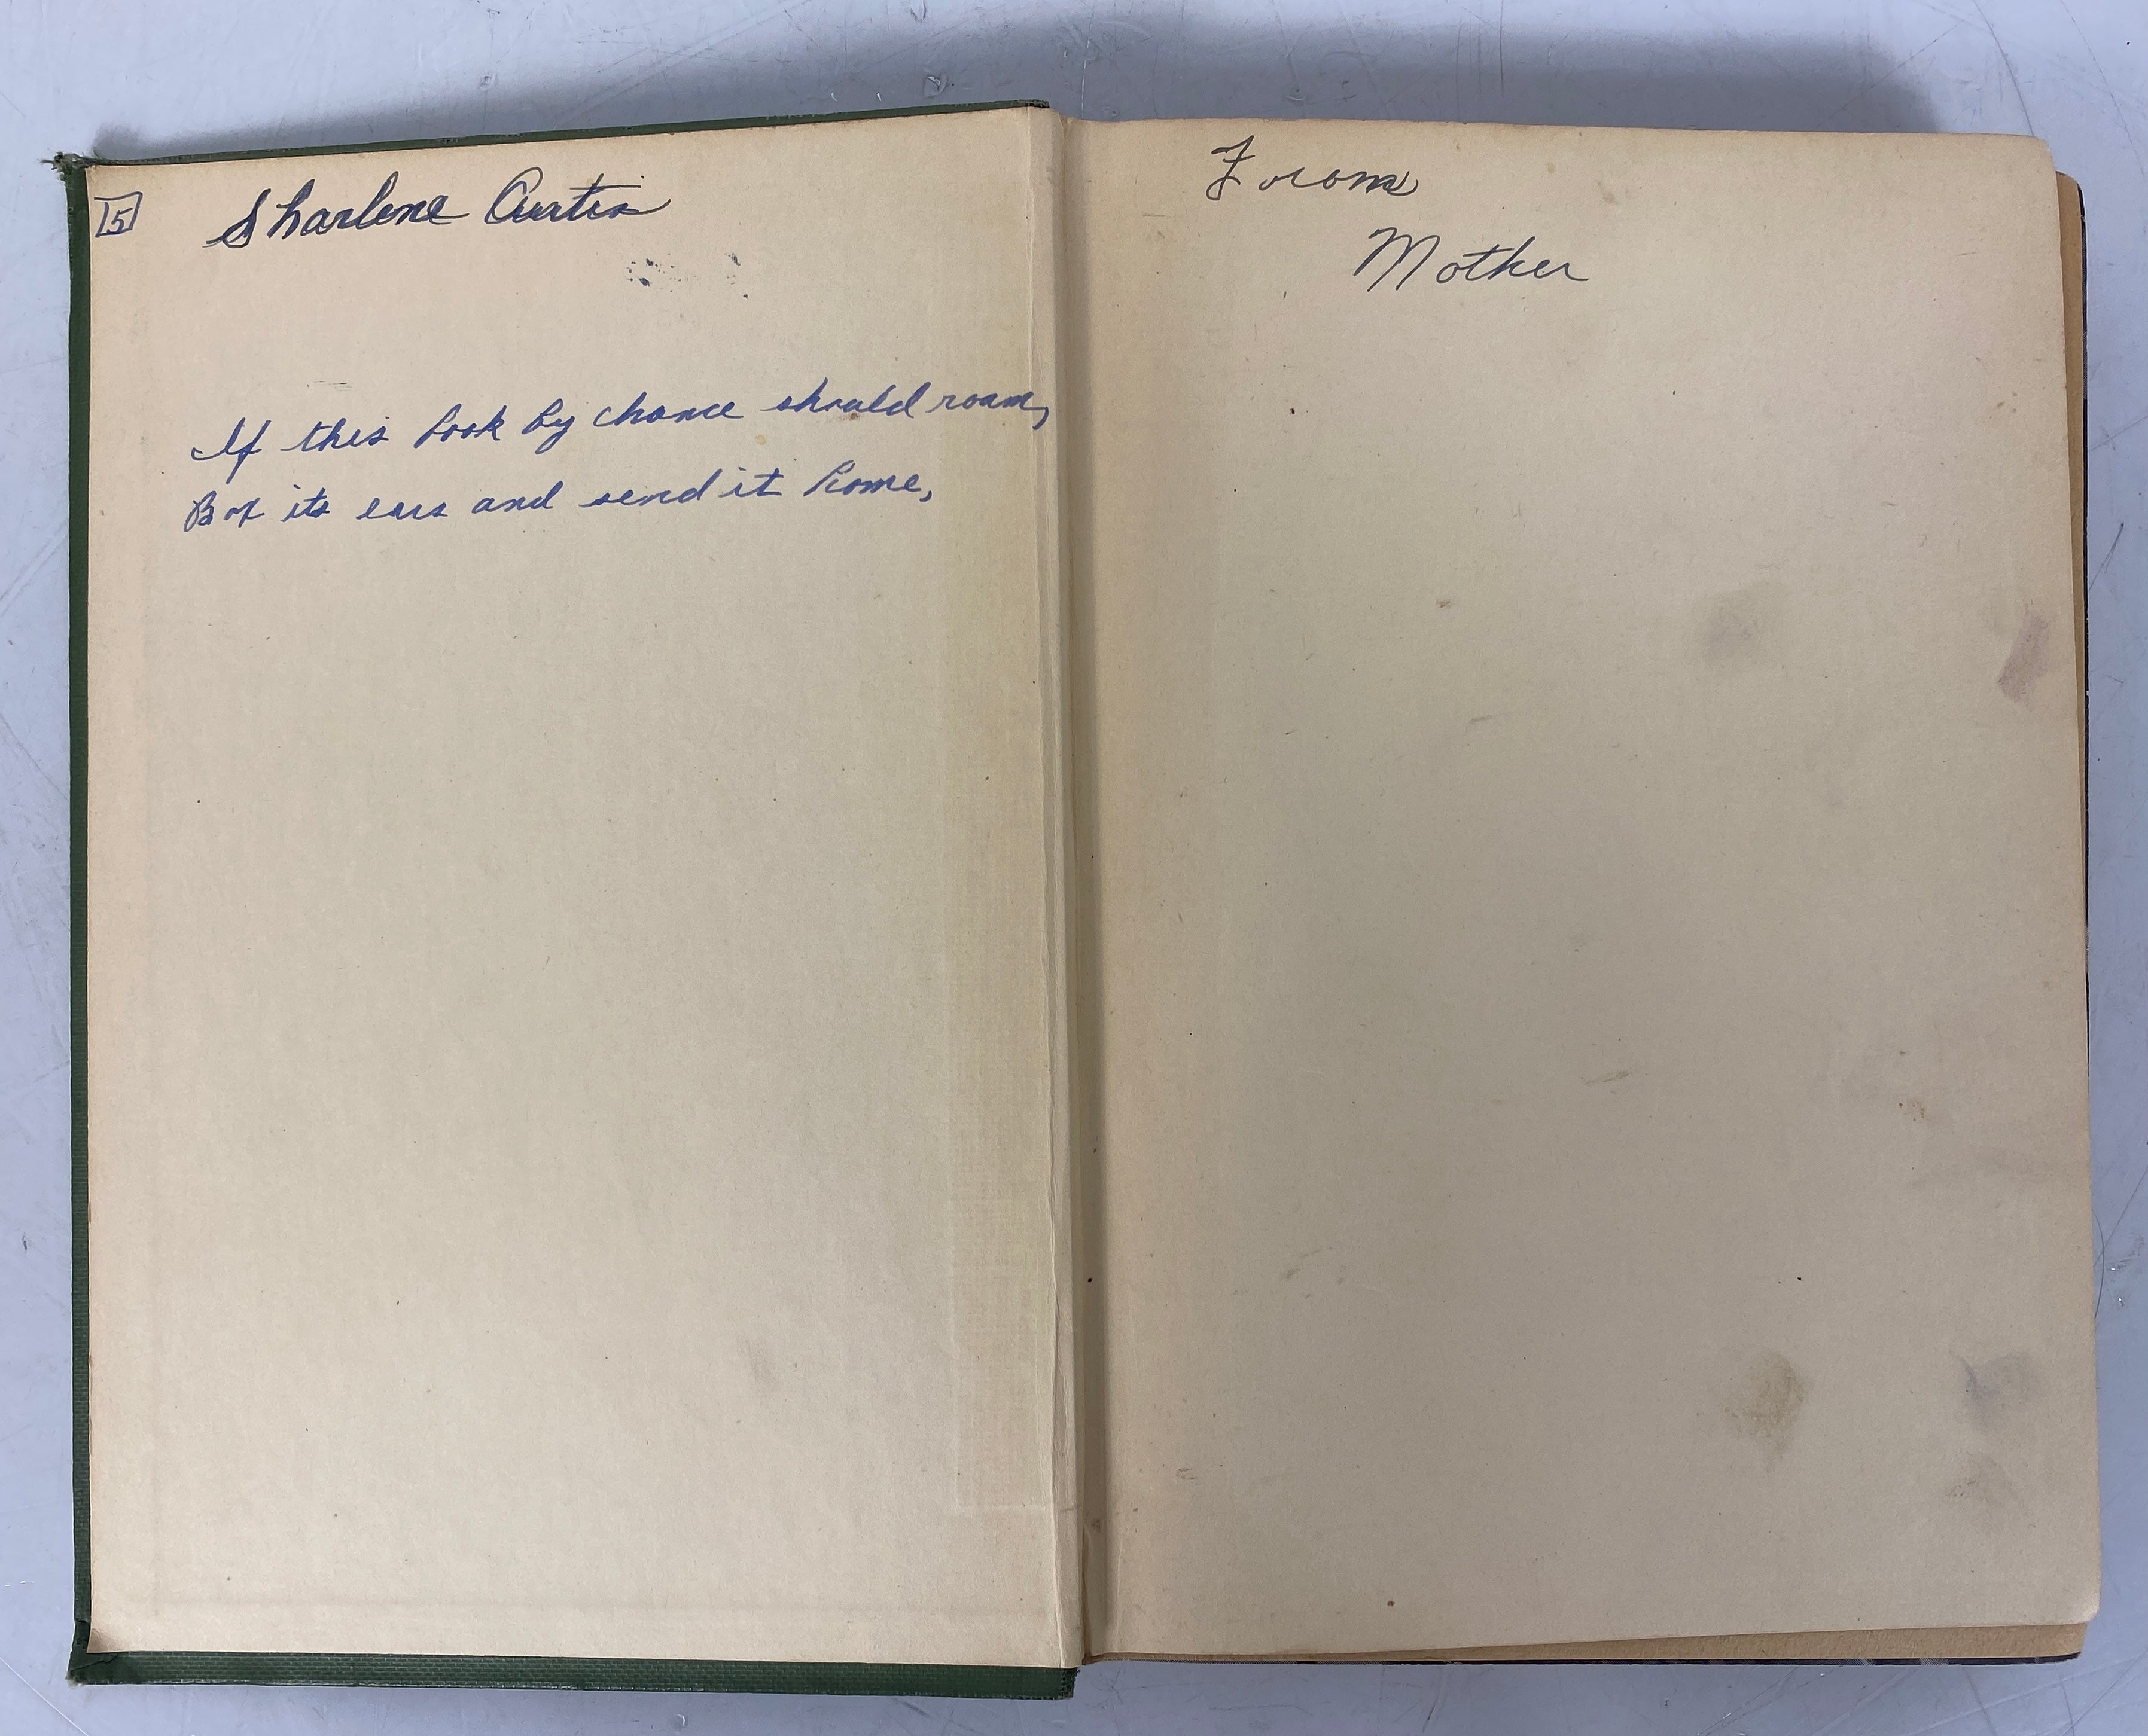 15
Sharlene Curtis
If this book by chance should roam,
Box its ears and send it home,
From
Mother